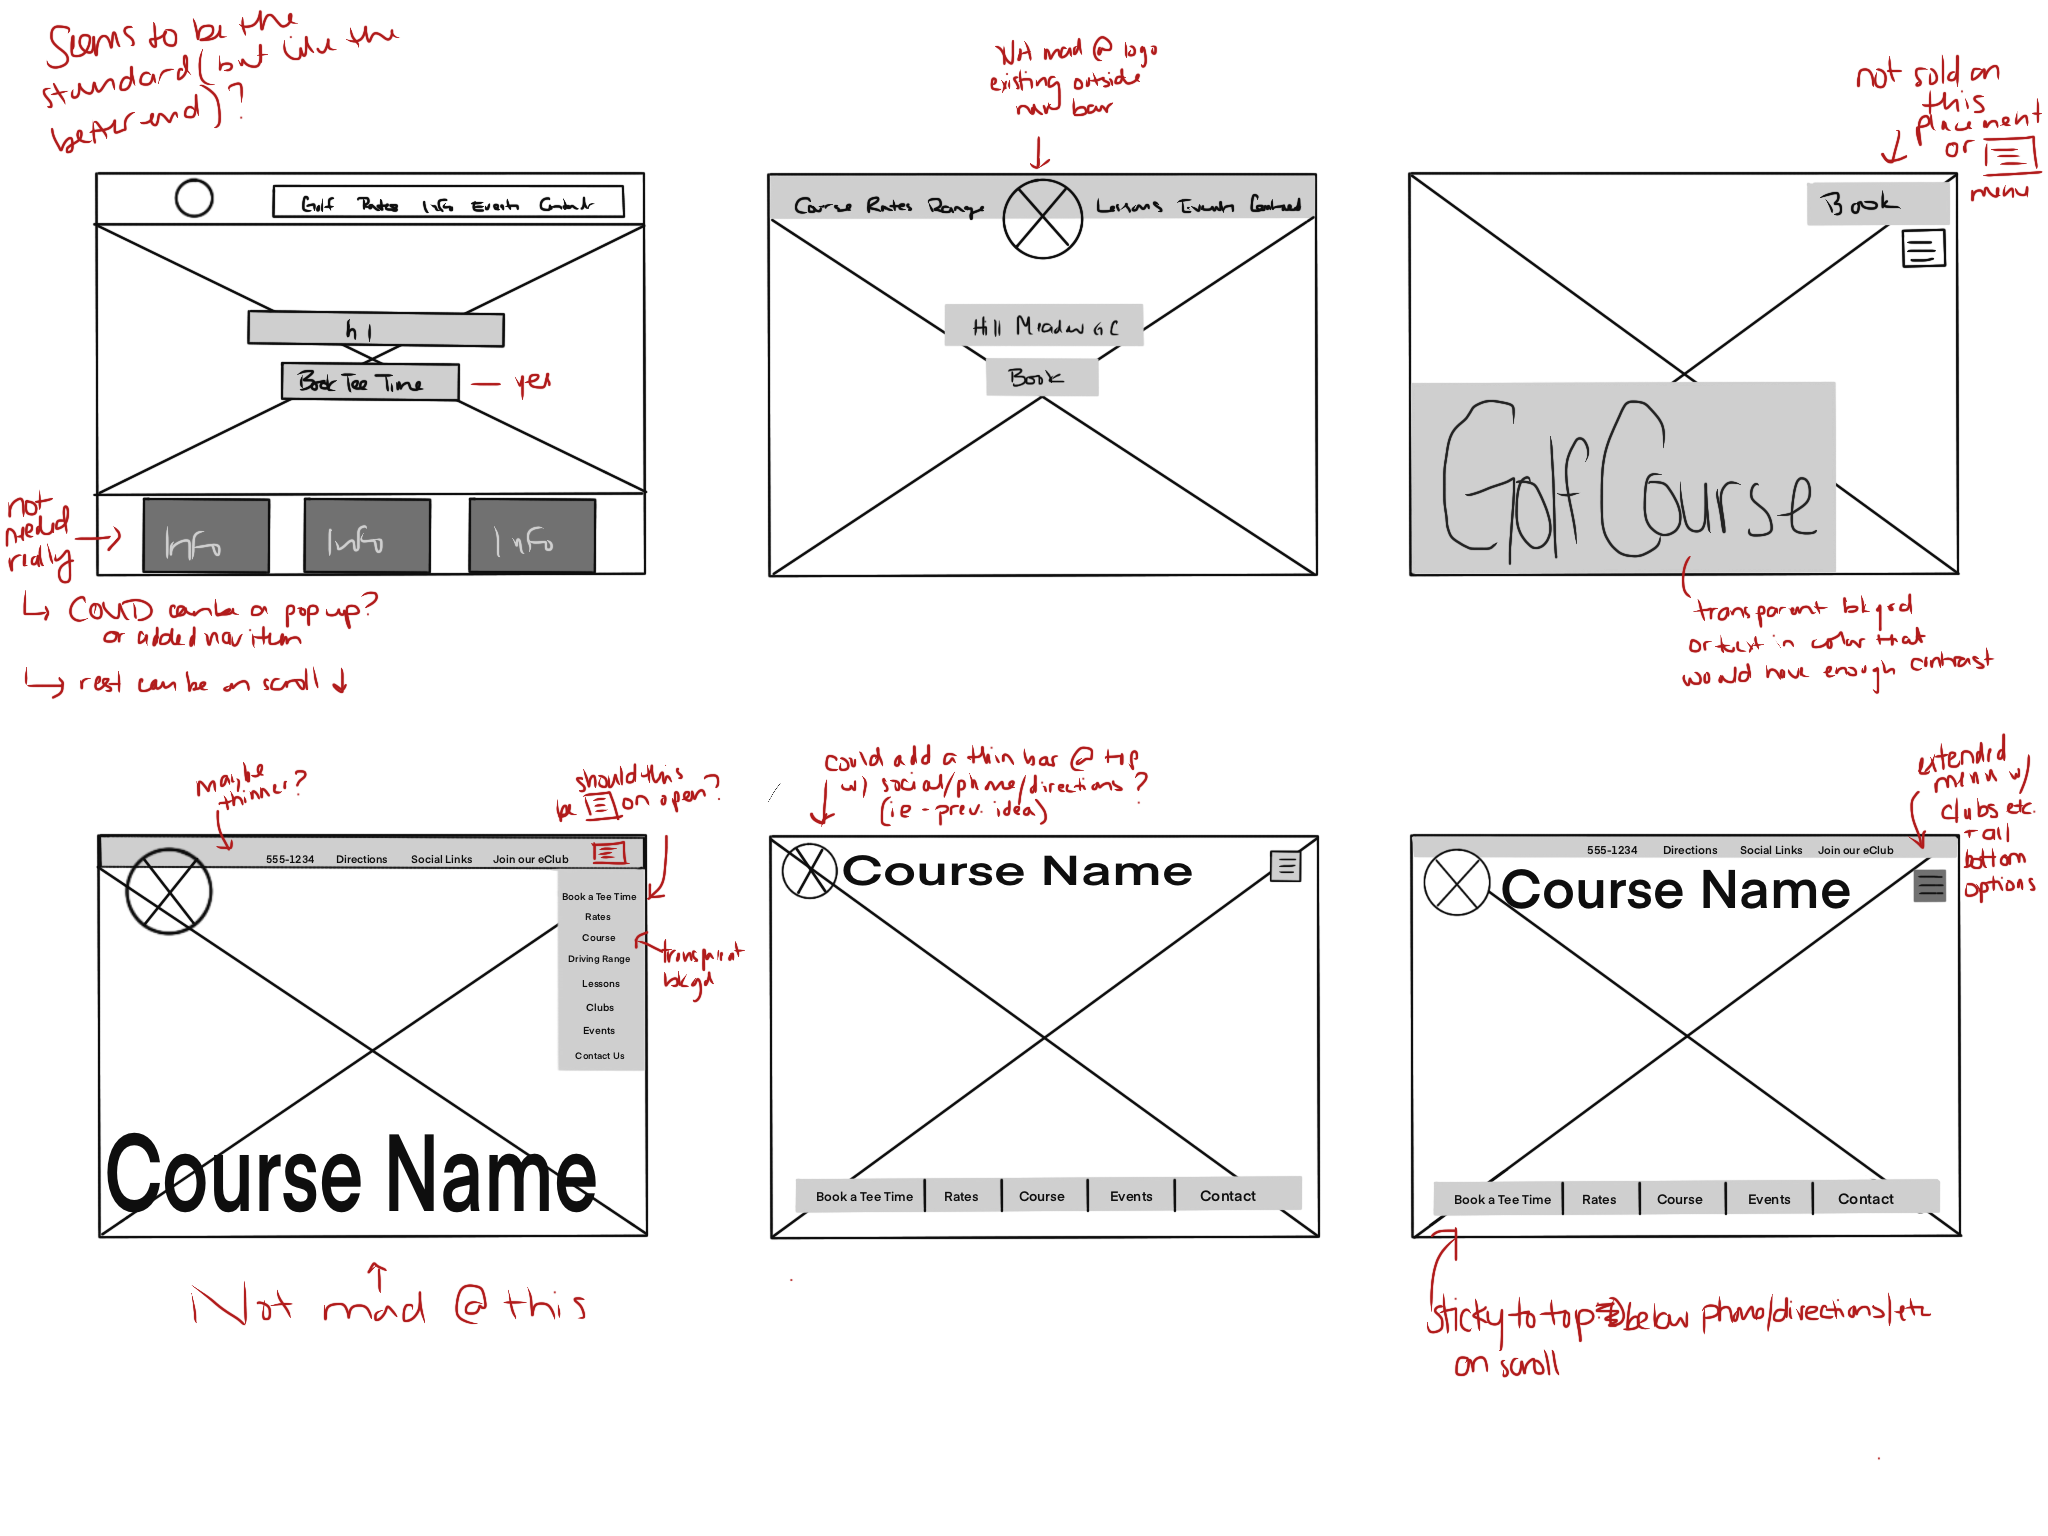 Seems to be the
standard (but like the
better end)?
Golf Rates Info Events Contact
h1
Book Tee Time — yes
not
needed
really
Info Info Info
↳ COVID can be a pop up?
or added nav item
↳ rest can be on scroll ↓
Not mad @ logo
existing outside
nav bar
Course Rates Range Lessons Events Contact
Hill Meadow GC
Book
not sold on
this
placement
or
menu
Book
Golf Course
transparent bkgrd
or text in color that
would have enough contrast
maybe
thinner?
should this
be on open?
555-1234 Directions Social Links Join our eClub
Book a Tee Time
Rates
Course
Driving Range
Lessons
Clubs
Events
Contact Us
transparent
bkgd
Course Name
Not mad @ this
could add a thin bar @ top
w/ social/phone/directions?
(ie - prev. idea)
Course Name
Book a Tee Time Rates Course Events Contact
extended
menu w/
clubs etc.
+ all
bottom
options
555-1234 Directions Social Links Join our eClub
Course Name
Book a Tee Time Rates Course Events Contact
sticky to top below phone/directions/etc
on scroll